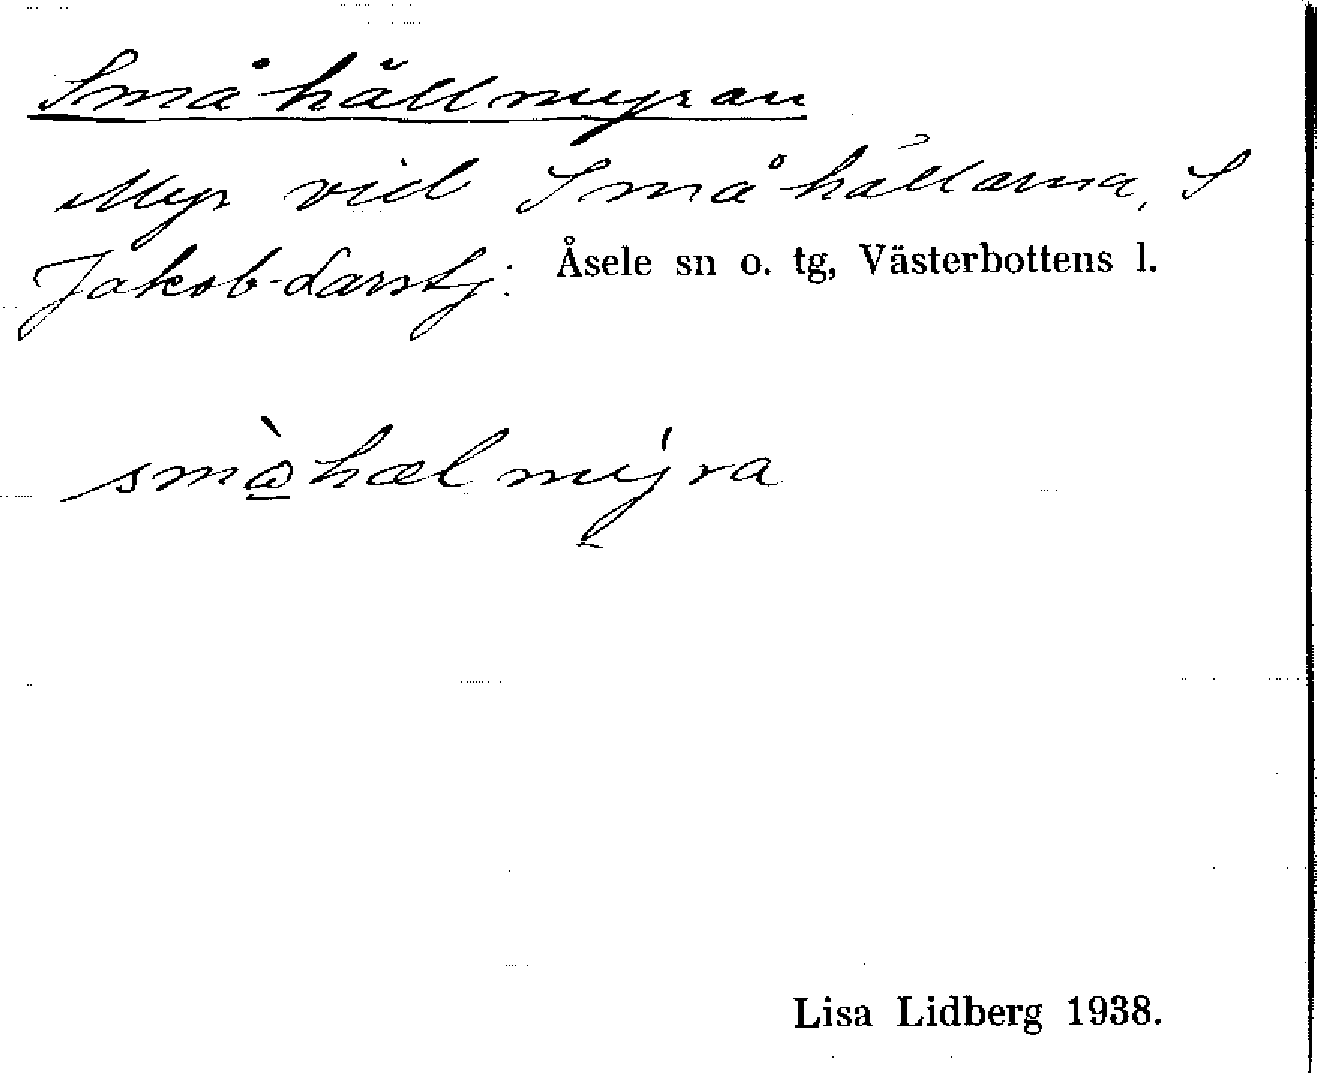 Småhällmyran
Myr vid Småhällarna, S
Jakob-Larstj: Åsele sn o. tg, Västerbottens l.
smàhælmýra
Lisa Lidberg 1938.